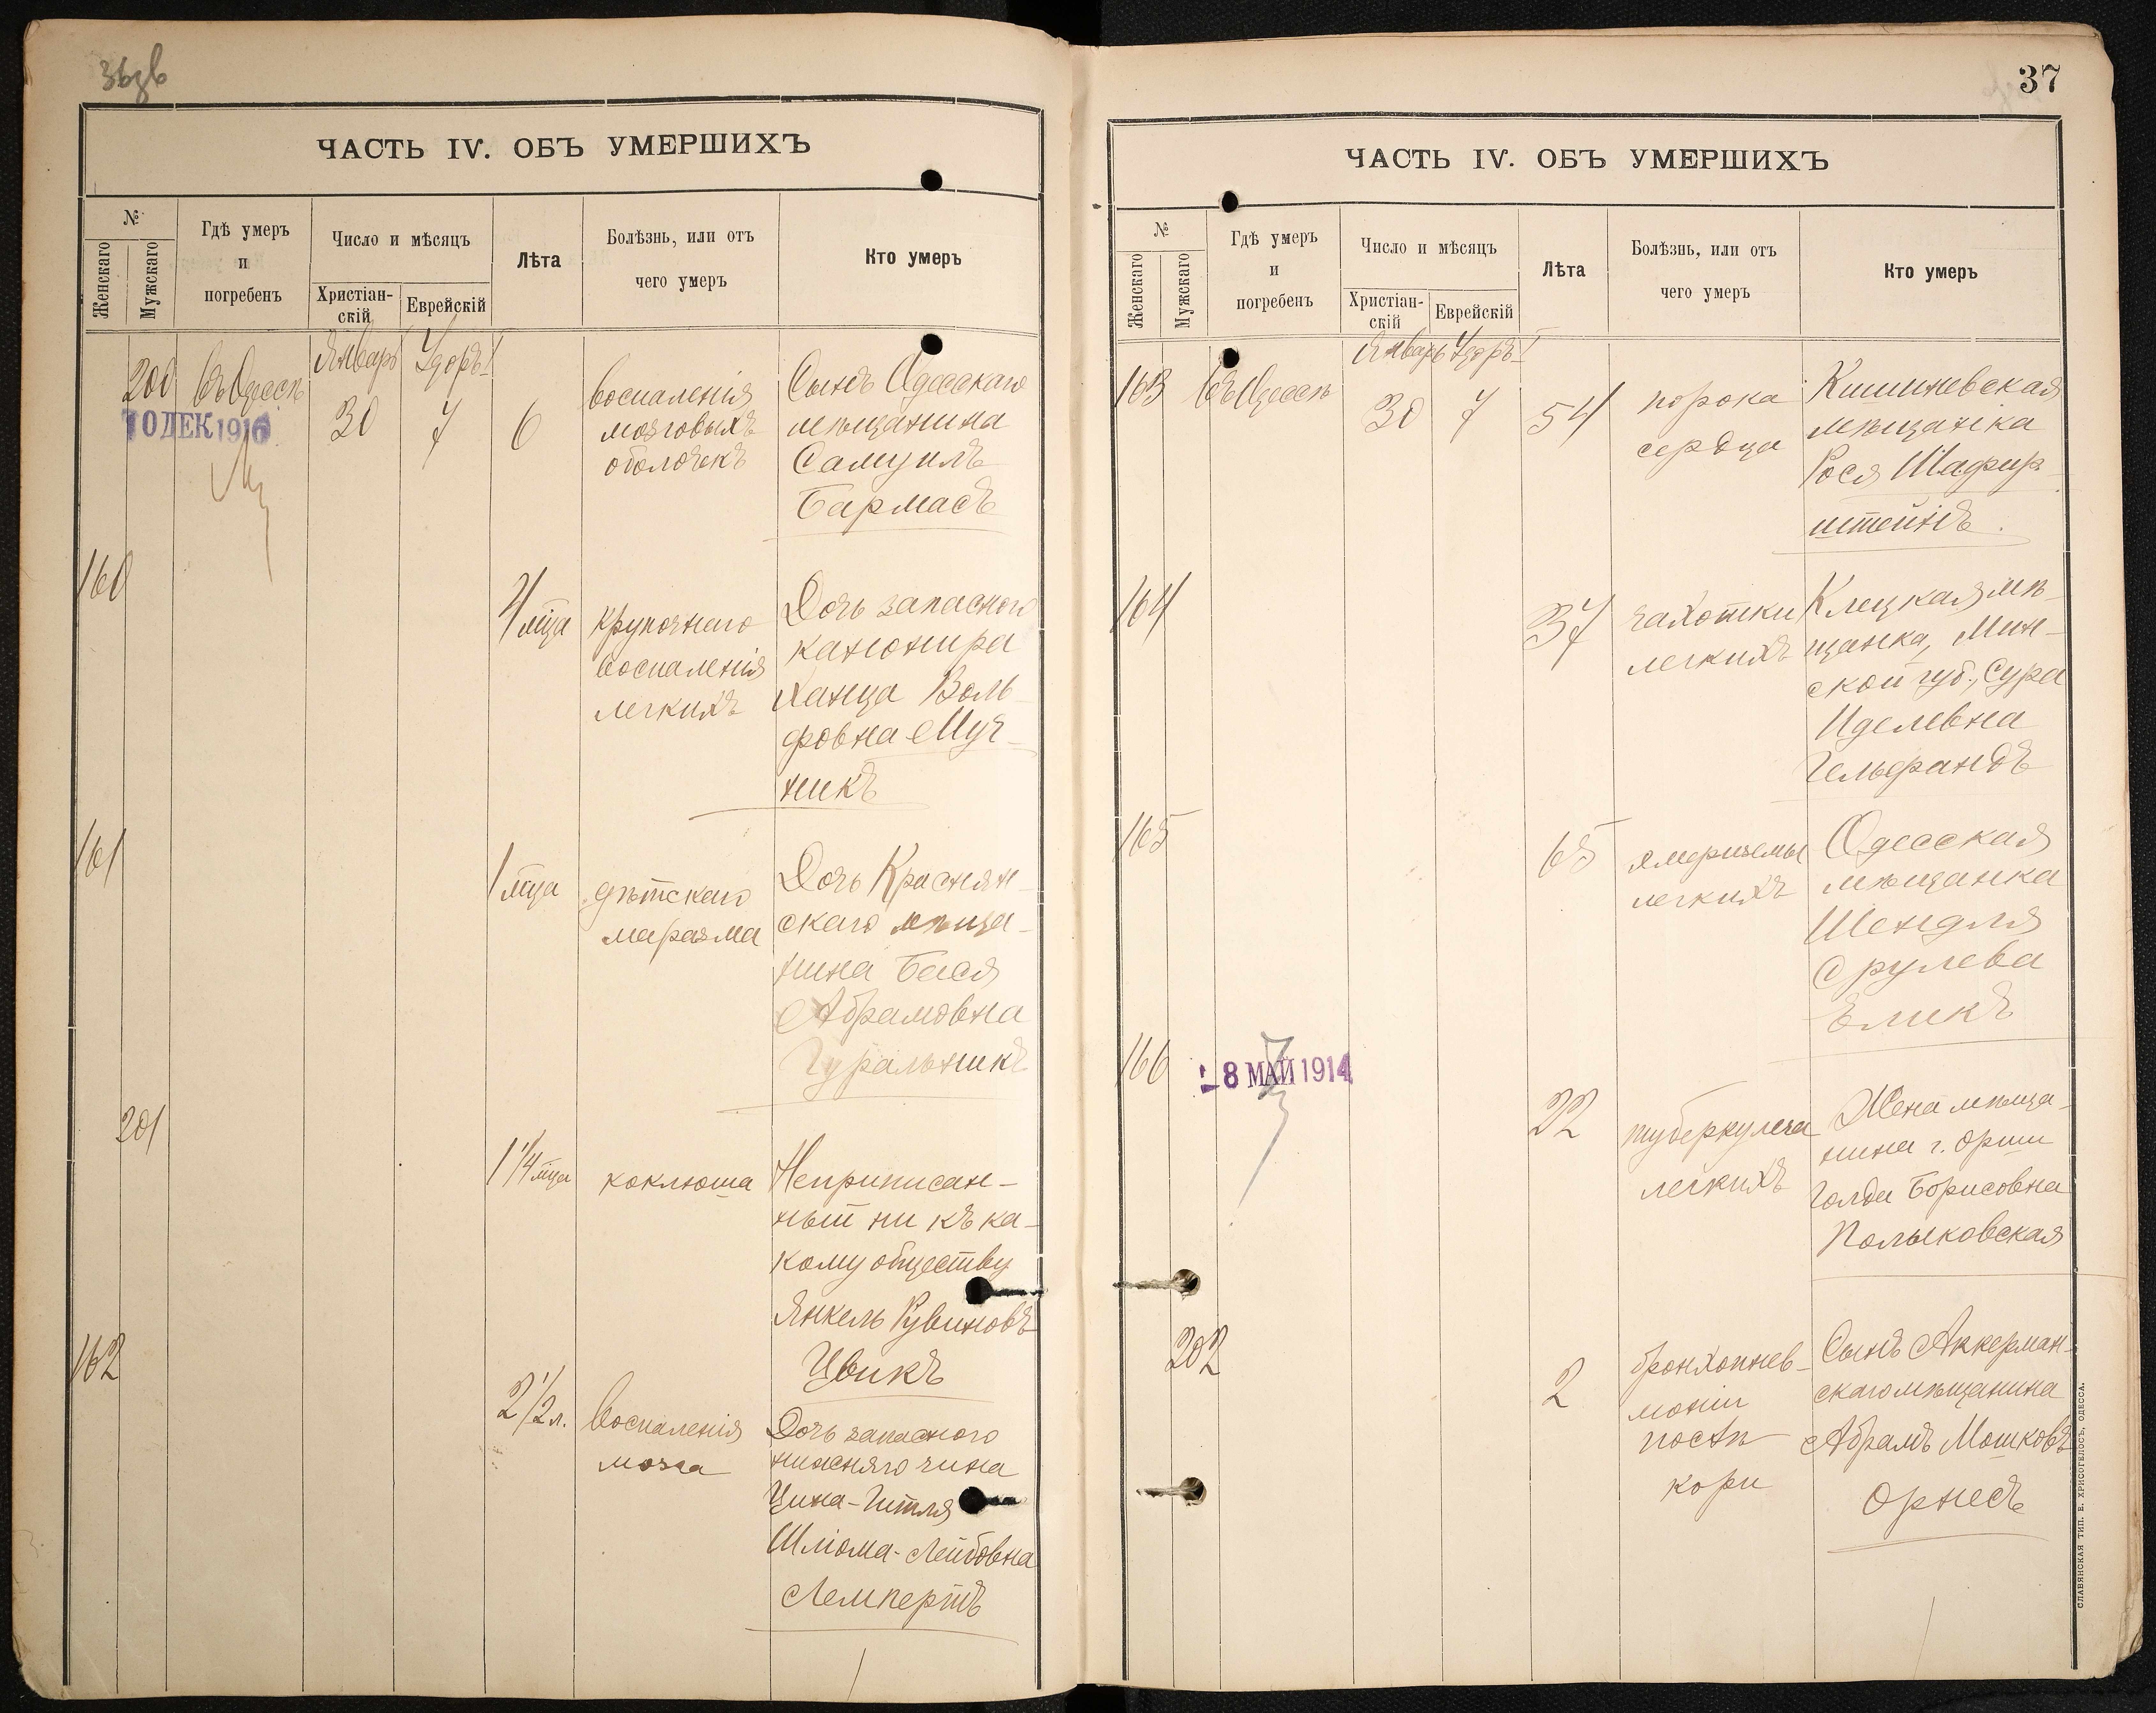 ЧАСТЬ IV. ОБЪ УМЕРШИХЪ
№
Женскаго
Мужскаго
Гдѣ умеръ
и
погребенъ
Число и мѣсяцъ
Христіан-
скій
Еврейскій
Лѣта
Болѣзнь, или отъ
чего умеръ
Кто умеръ
200
въ Одессѣ
Январь
30
7
6
10 ДЕК 1916
воспаленія
мозговыхъ
оболочекъ
Сынъ Одесскаго
мѣщанина
Самуилъ
Бармасъ
160
4 мца
крупознаго
воспаленія
легкихъ
Дочь запасного
канонира
Ханца Воль-
фовна Муч-
никъ
161
1 мца
дѣтскаго
маразма
Дочь Краснян-
скаго мѣща-
нина Бася
Абрамовна
Гуральникъ
201
1 1/4 мца
коклюша
Неприписан-
ный ни къ ка-
кому обществу
Янкель Рувиновъ
Цвикъ
162
2 1/2 л.
Воспаленія
мозга
Дочь запасного
нижняго чина
Цина-Гитля
Шліома-Лейбовна
Лемпертъ
37
ЧАСТЬ IV. ОБЪ УМЕРШИХЪ
№
Женскаго
Мужскаго
Гдѣ умеръ
и
погребенъ
Число и мѣсяцъ
Христіан-
скій
Еврейскій
Лѣта
Болѣзнь, или отъ
чего умеръ
Кто умеръ
163
въ Одессѣ
Январь
30
7
54
порока
сердца
Кишиневская
мѣщанка
Рося Шафир-
штейнъ.
164
37
чахотки
легкихъ
Клецкая мѣ-
щанка, Мин-
ской губ., Сура
Иделевна
Гельфандъ
165
65
эмфиземы
легкихъ
Одесская
мѣщанка
Шендля
Срулева
Еликъ
166
- 8 МАЙ 1914
22
туберкулеза
легкихъ
Жена мѣща-
нина г. Орши
Голда Борисовна
Полыковская
202
2
бронхопнев-
моніи
послѣ
кори
Сынъ Аккерман-
скаго мѣщанина
Абрамъ Мошковъ
Орнесъ
СЛАВЯНСКАЯ ТИП. Е. ХРИСОГЕЛОСЪ, ОДЕССА.